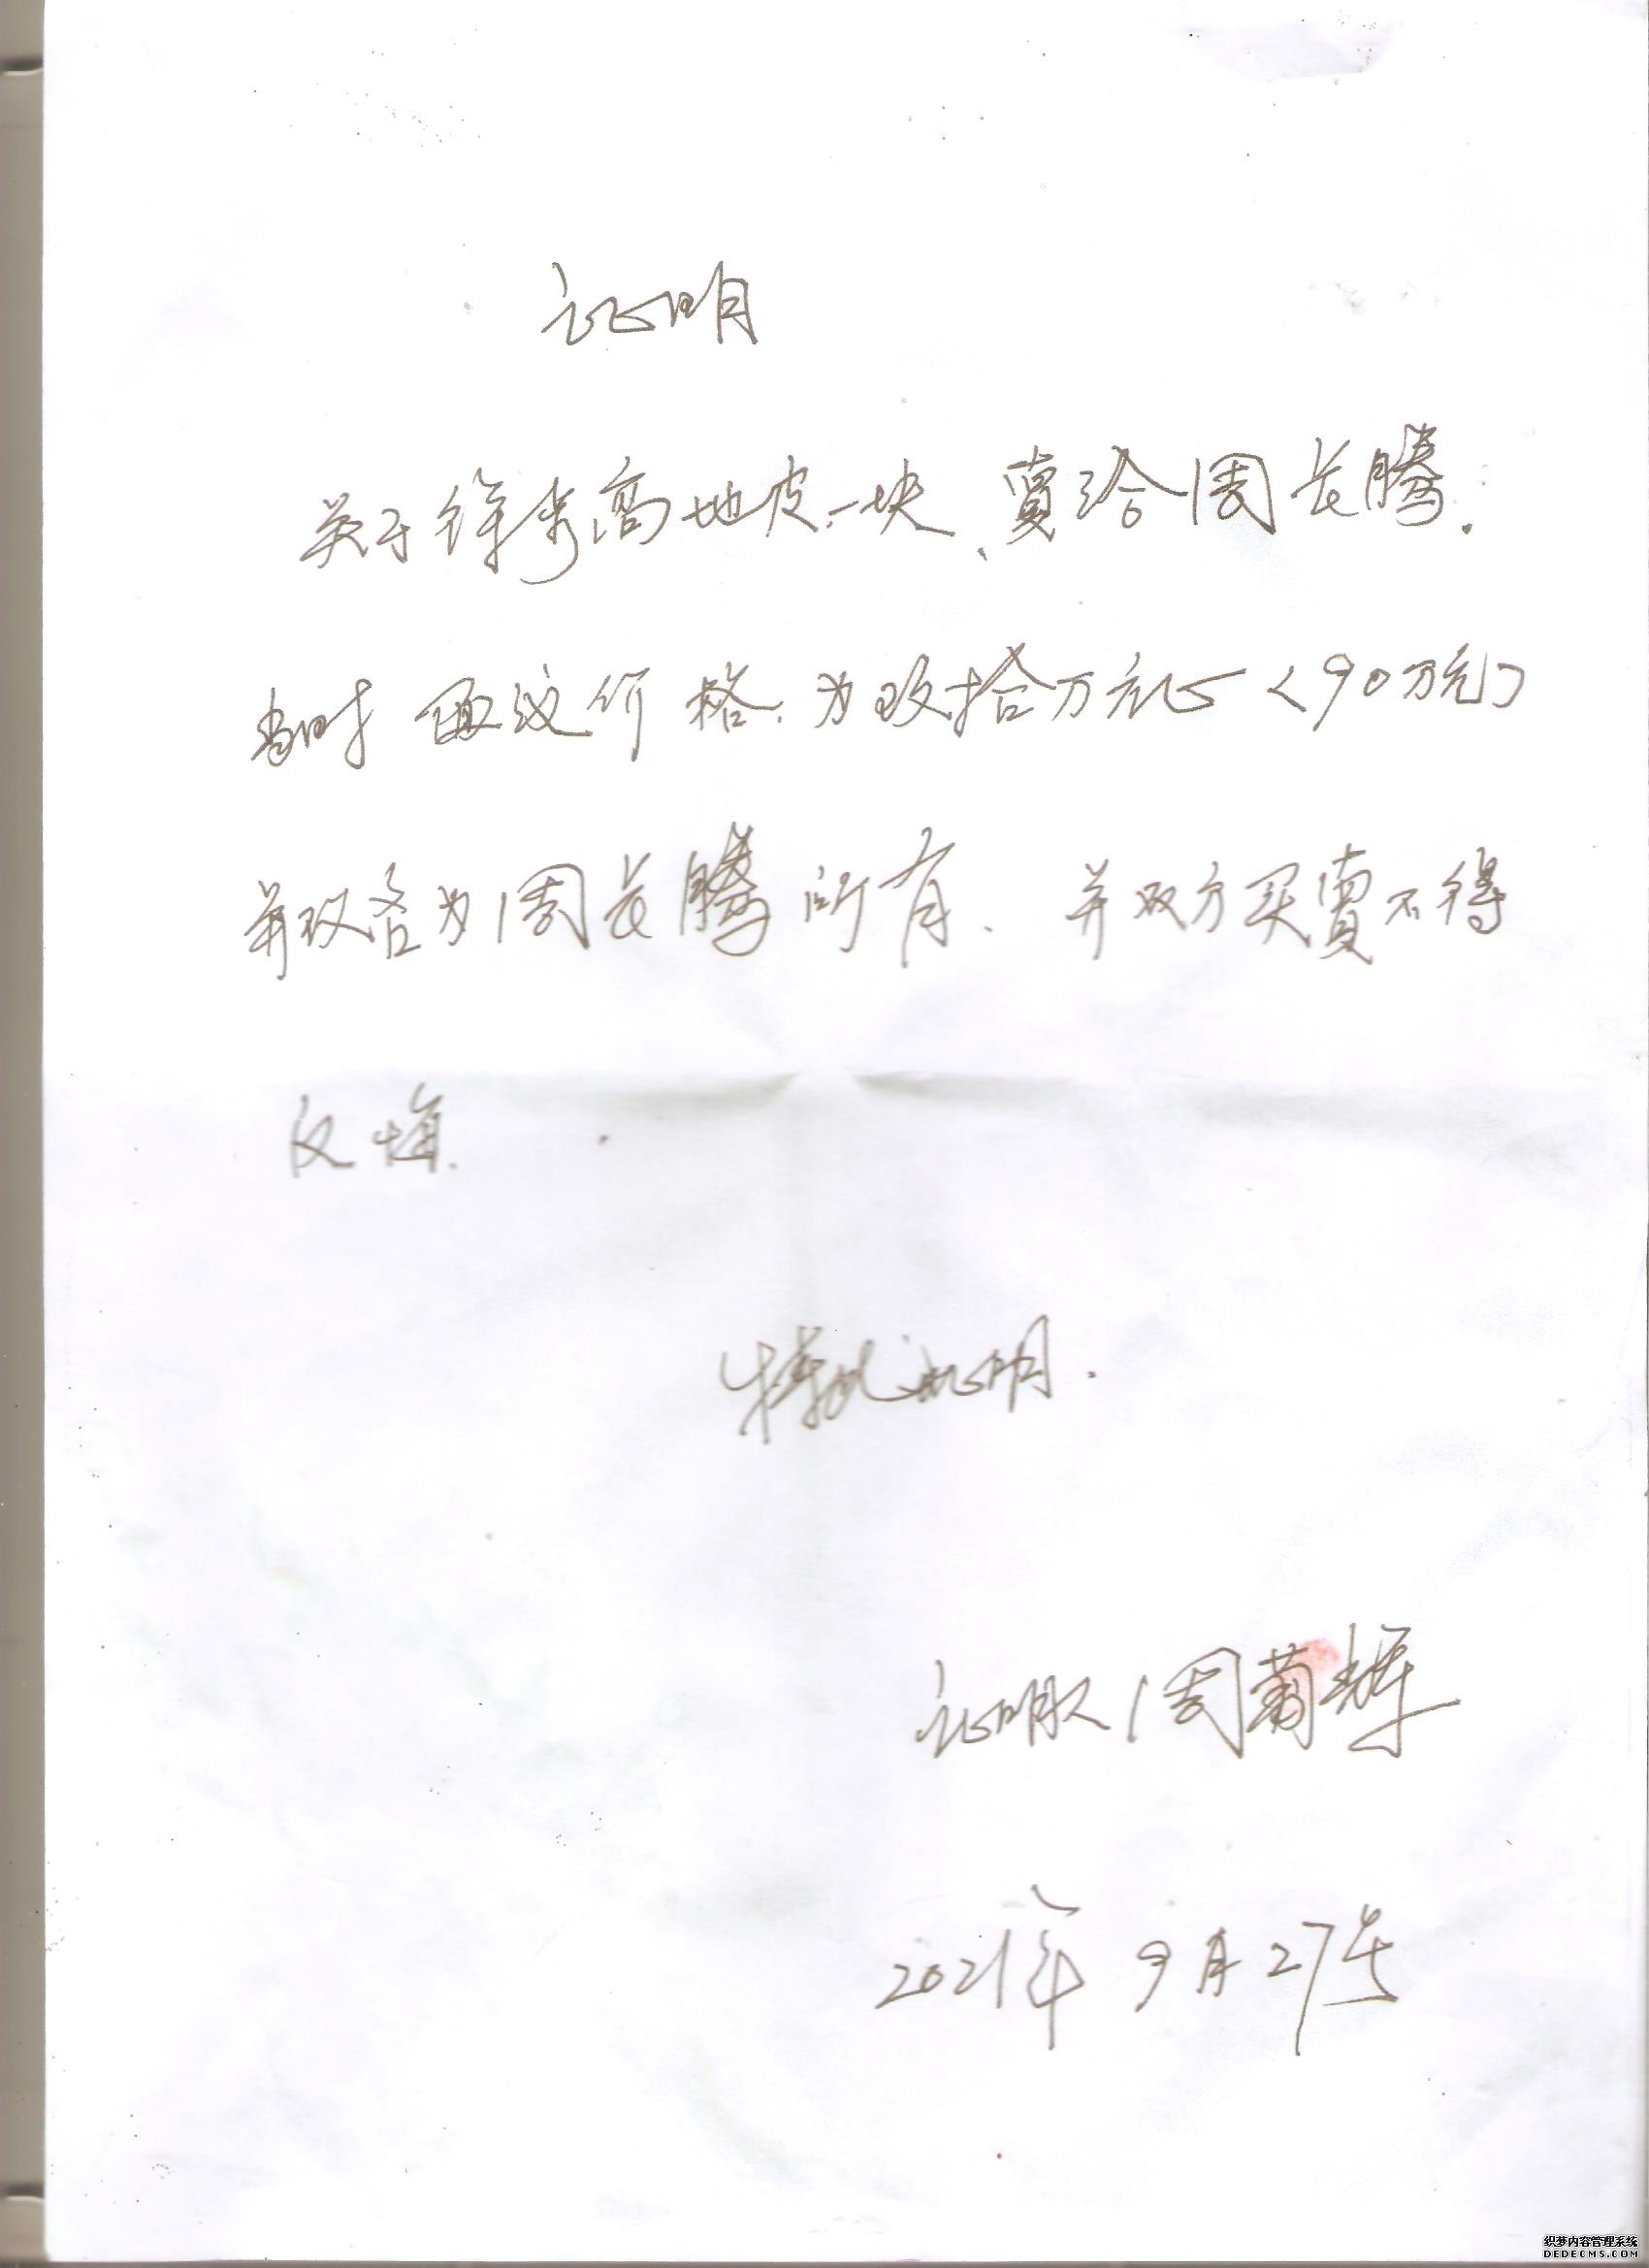 证明
关于徐秀高地皮一块、卖给周长腾.
当时 面议价格.为玖拾万元正<90万元>
并改名为周长腾所有、并双方买卖不得
反悔.
特此证明.
证明人周菊辉
2021年9月27号
织梦内容管理系统
DEDECMS.COM